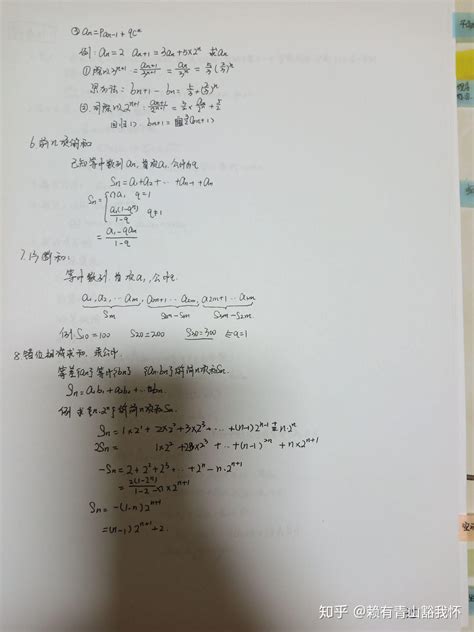 ③ an=Pan-1+qcⁿ
例: an=2 an+1=3an+5×2ⁿ 求an
①除以3ⁿ⁺¹
累加法: bn+1-bn=
②同除以2ⁿ⁺¹:
回归1> bn+1=
6.前n项的和
已知等比数列an,首项a,公比为q
Sn=a1+a2+…+an-1+an
Sn={na, q=1
a1(1-qⁿ)/1-q q≠1
=a1-qan/1-q
7.片断和:
等比数列.首项a,公比q.
a1,a2,…am, am+1…a2m, a2m+1…a3m
Sm S2m-Sm S3m-S2m
例.S10=100 S20=200 S30=300 q=1
8.错位相减求和.乘公比.
等差{an}等比{bn} {an·bn}的前n项和Sn.
Sn=a1b1+a2b2+…
例 求{n·2ⁿ}的前n项和Sn.
Sn=1×2¹+2×2²+3×2³+…+(n-1)2ⁿ⁻¹+n·2ⁿ
2Sn= 1×2²+2×2³+…+(n-1)2ⁿ+n×2ⁿ⁺¹
-Sn=2+2²+2³+…+2ⁿ-n·2ⁿ⁺¹
=2(1-2ⁿ)/1-2-n×2ⁿ⁺¹
Sn=-(1-n)2ⁿ⁺¹
=(n-1)2ⁿ⁺¹+2.
知乎 @赖有青山豁我怀